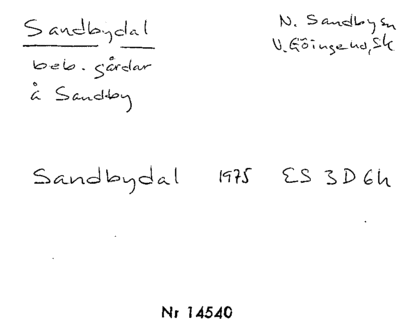 Sandbydal
N. Sandby sn
V. Göinge hd, Sk
beb. gårdar
å Sandby
Sandbydal 1975 ES 3D6h
Nr 14540